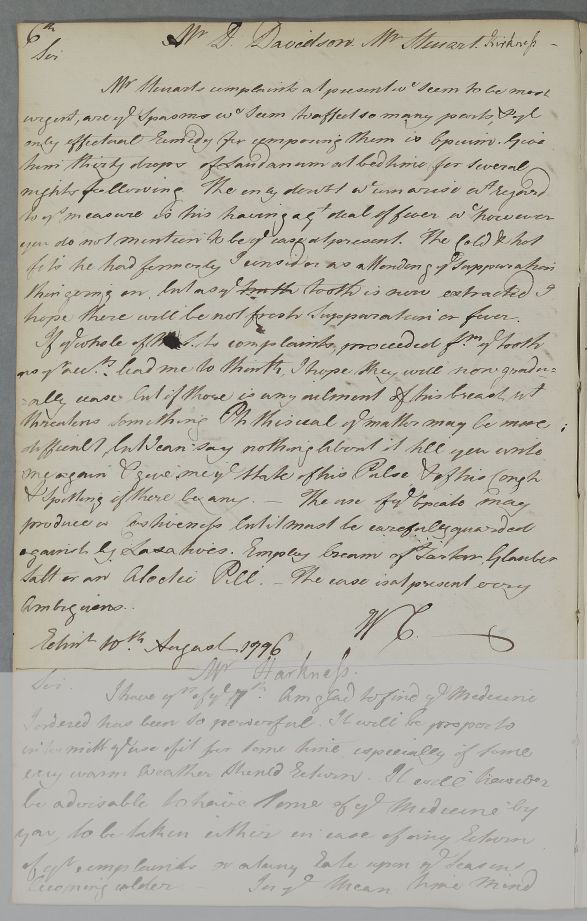 6th Mr D. Davidson. Mr Stuart. Kirkness –
Sir
Mr Stuarts complaints at present wc seem to be most
urgent, are ye Spasms wc seem to affect so many parts, & ye
only effectual Remedy for composing them is Opium. Give
him thirty drops of Laudanum at bed time for several
nights following. The only doubt wc can arise wt regard
to ys measure is his having a gt deal of fever wc however
you do not mention to be ye case at present. The Cold & hot
fits he had formerly I consider as attending ye Suppuration
then going on, but as ye tooth is now extracted I
hope there will be no fresh Suppuration or fever.
If ye whole of Mr S.ts complaints, proceeded fm ye tooth
as ye acct. lead me to think, I hope they will now gradu-
-ally cease but if there is any ailment of his breast wt
threatens something Phthisical ye matter may be more
difficult, but I can say nothing about it till you write
me again & give me ye State of his Pulse & of his Cough
& Spitting if there be any. – The use of ye Opiate may
produce a costiveness but it must be carefully guarded
against by Laxatives. Employ Cream of Tartar, Glauber
Salt or an Aloetic Pill. – The case is at present very
Ambiguous.
Edinr 10th August 1776 W C.
Mr Harkness.
Sir. I have yrs of ye 7th. Am glad to find ye Medicine
I ordered has been so powerful. It will be proper to
intermitt ye use of it for some time especially if some
very warm weather should Return. It will however
be advisable to have some of ye Medicine by
you, to be taken either in case of any Return
of yr complaints or at any Rate upon ye Seasons
becoming colder – In ye Mean time mind